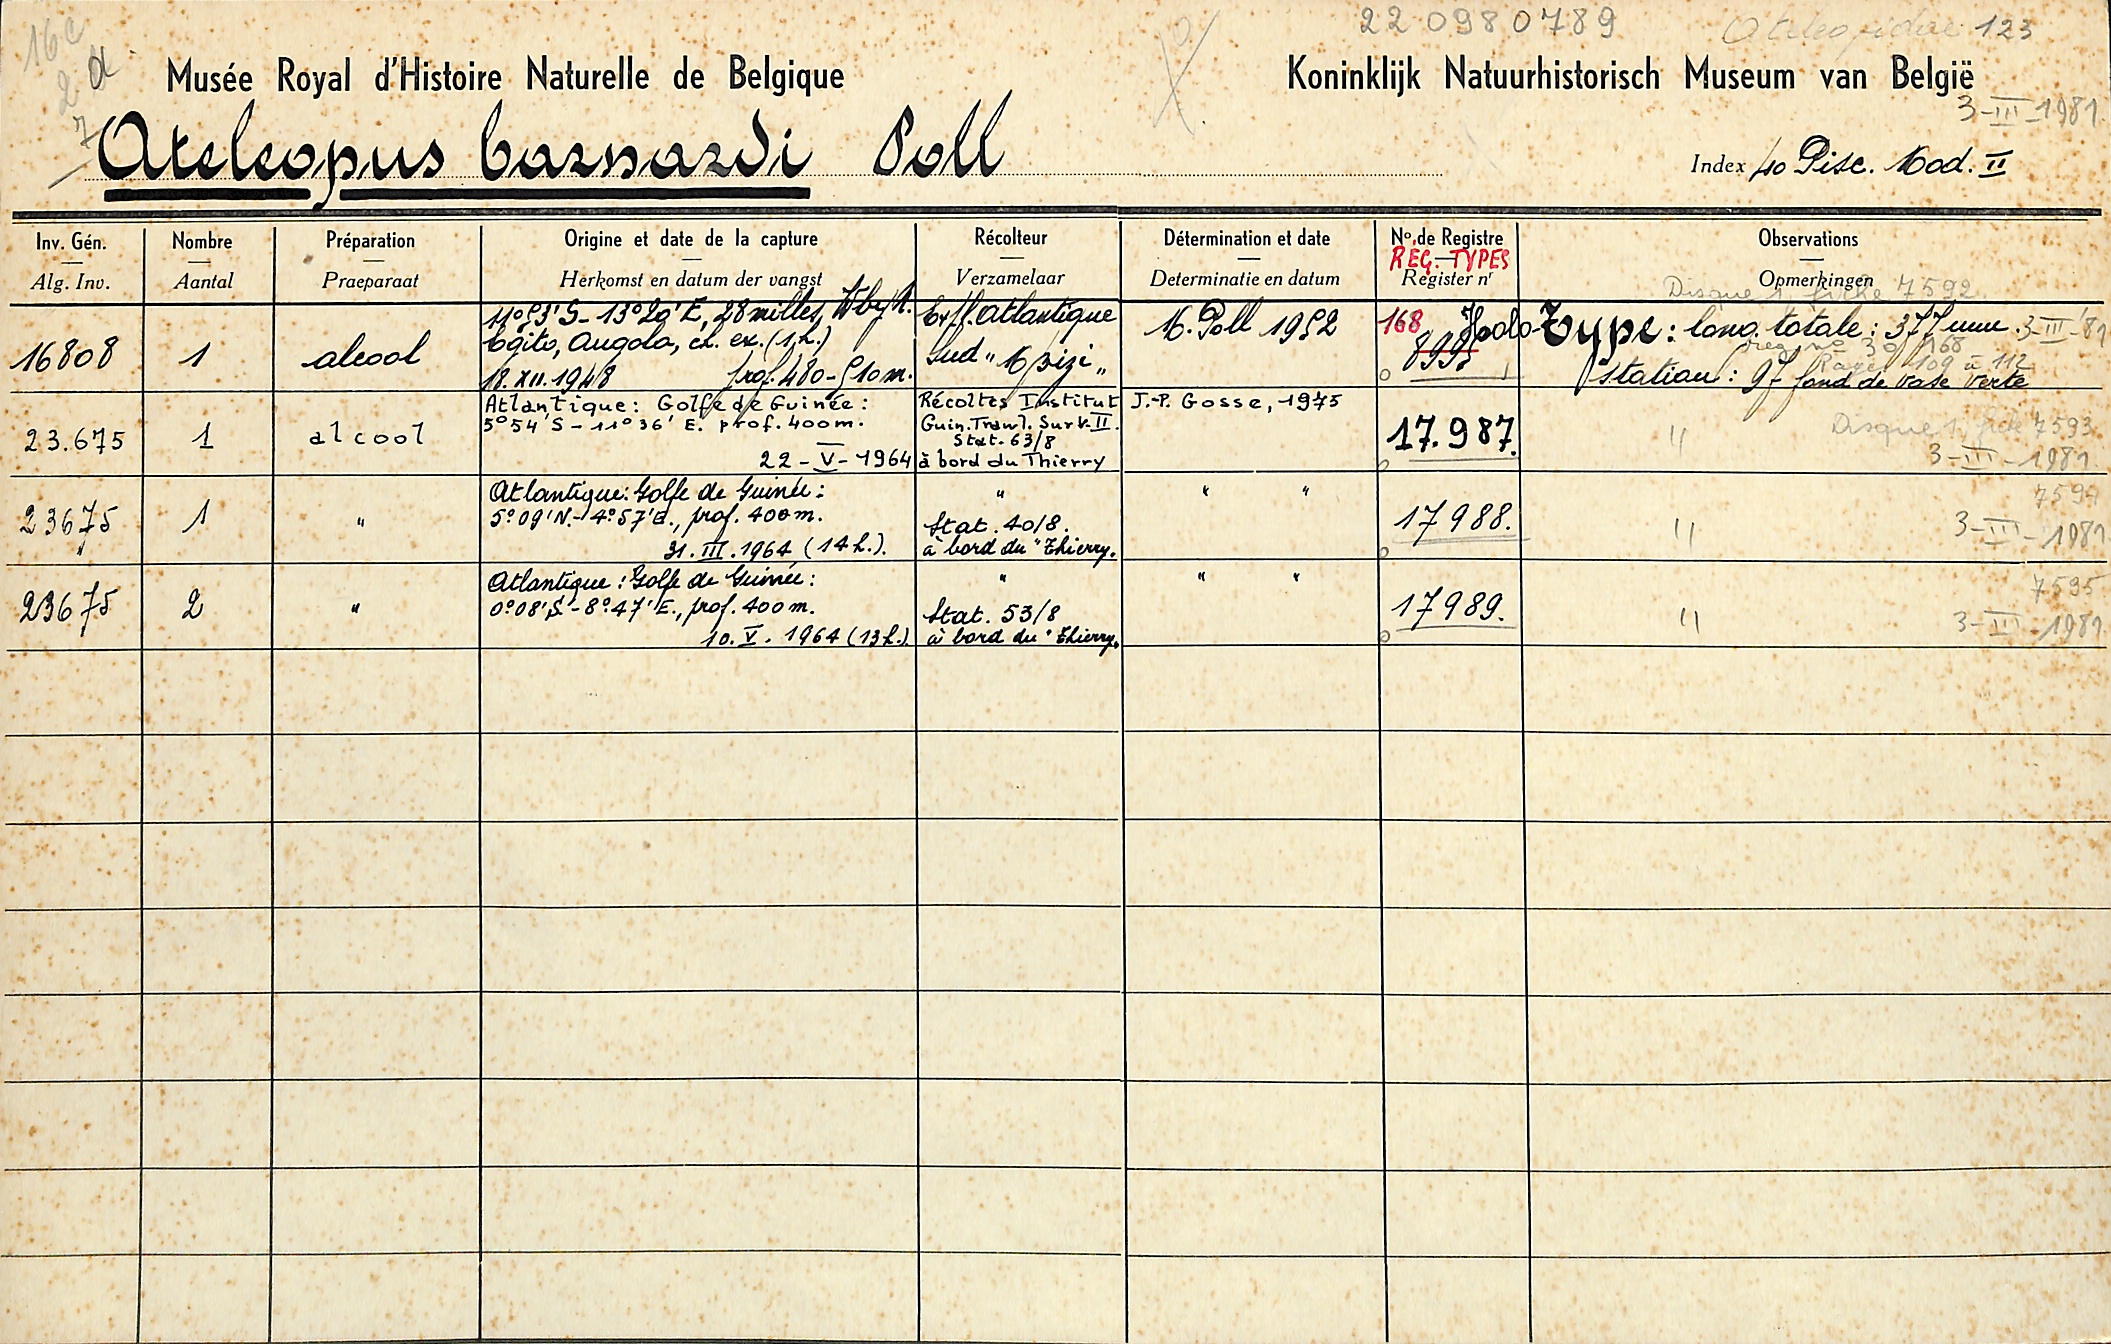 16c
2 d.
7
22 0980789
Ateleopidae 123
Musée Royal d'Histoire Naturelle de Belgique
Koninklijk Natuurhistorisch Museum van België
3-III-1981.
Ateleopus barnardi Poll
Index 40 Pisc. Mod. II
Inv. Gén. Nombre Préparation Origine et date de la capture Récolteur Détermination et date No. de Registre Observations
REG. TYPES
Alg. Inv. Aantal Praeparaat Herkomst en datum der vangst Verzamelaar Determinatie en datum Register nr Opmerkingen
Disque 1 fiche 7592
16808 1 alcool
11°53'S - 13°20'E, 28 milles, W by N.
Egito, Angola, ch. ex. (1h.)
18.XII.1948 prof. 480-510m.
Exp. atlantique
Sud "Mpizi"
M. Poll 1952
168
8995
Holo-Type: long. totale: 377mm. 3-III-'81
reg. no 30 168
Pages 109 à 112
station: 97 fond de vase verte
23.675 1 alcool
Atlantique: Golfe de Guinée:
5°54'S - 11°36' E. prof. 400m.
22-V-1964
Récoltes Institut
Guin. Trawl. Surv. II.
Stat. 63/8
à bord du Thierry
J.-P. Gosse, 1975
17.987.
" Disque 1 fiche 7593
3-III-1981.
23675 1 "
Atlantique: Golfe de Guinée:
5°09'N.- 4°57'E., prof. 400m.
31.III.1964 (14h.).
"
Stat. 40/8.
à bord du "Thierry.
" "
17988.
" 7594
3-III-1981
23675 2 "
Atlantique: Golfe de Guinée:
0°08'S - 8°47'E., prof. 400m.
10.V.1964 (13h.)
"
Stat. 53/8
à bord du "Thierry.
" "
17989.
" 7595
3-III-1981.